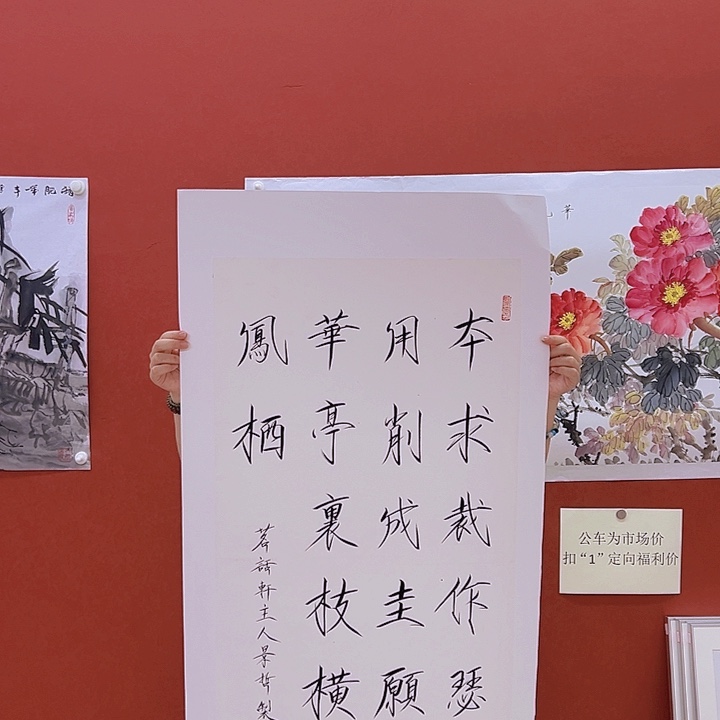 本求裁作瑟
用削成圭願
華亭裏枝横
鳳栖
茗話軒主人景哲製
公车为市场价
扣“1”定向福利价
華